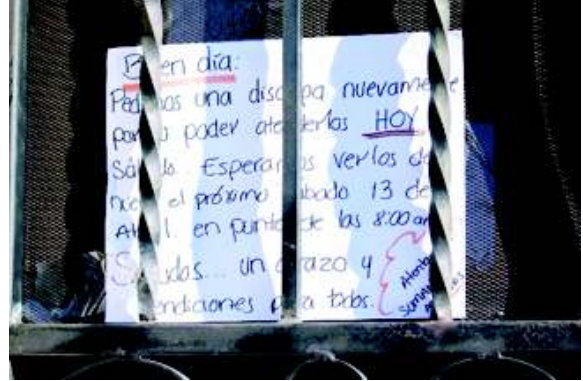 Buen día:
Pedimos una disculpa nuevamente
por no poder atenderlos HOY
Sábado. Esperamos verlos de
nuevo el próximo sábado 13 de
Abril. en punto de las 8:00 am
Saludos... un abrazo y
bendiciones para todos.